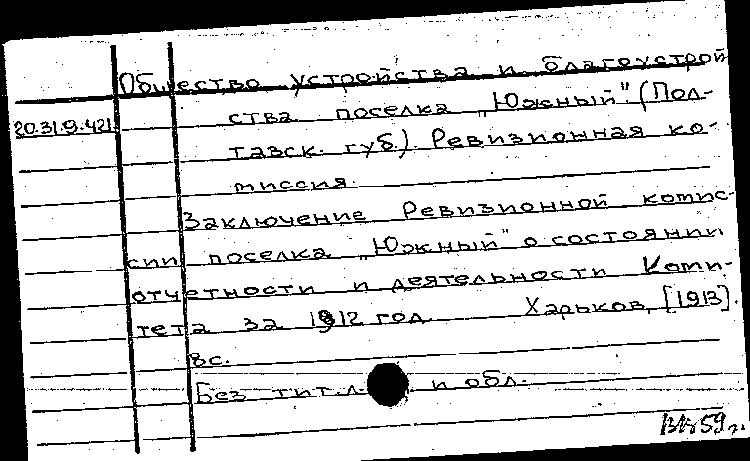 Общество устройства и благоустрой
20.31.9.421
ства поселка „Южный" (Пол-
тавск. губ.). Ревизионная ко-
миссия.
Заключение Ревизионной комис-
сии поселка „Южный" о состоянии
отчетности и деятельности Коми-
тета за 1912 год. Харьков, [1913].
8с.
Без тит.л. и обл.